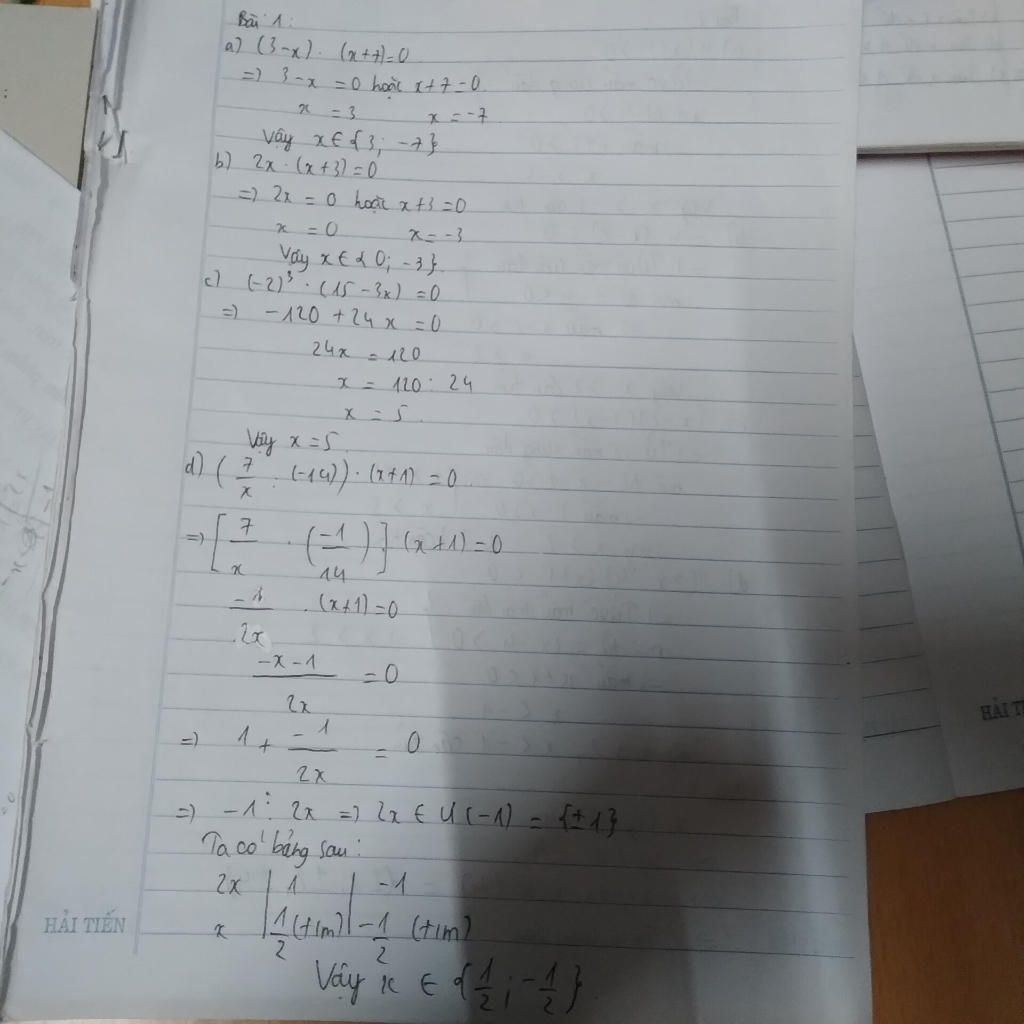 Bài 1:
a) (3-x) . (x+7)=0
=) 3-x = 0 hoặc x+7=0
x = 3 x = -7
Vậy x ∈ {3; -7}
b) 2x . (x+3)=0
=) 2x = 0 hoặc x+3=0
x = 0 x = -3
Vậy x ∈ {0; -3}.
c) (-2)³ . (15-3x) = 0
=) -120 + 24x = 0
24x = 120
x = 120 : 24
x = 5.
Vậy x = 5.
d) (7/x : (-14)) . (x+1) = 0
=) [7/x . (-1/14)] (x+1) = 0
-1/2x . (x+1) = 0
-x-1/2x = 0
=) 1 + -1/2x = 0
=) -1 ⋮ 2x =) 2x ∈ Ư(-1) = {±1}
Ta có bảng sau:
2x | 1 | -1
x | 1/2 (t/m) | -1/2 (t/m)
Vậy x ∈ {1/2; -1/2}.
HẢI TIẾN
HẢI T